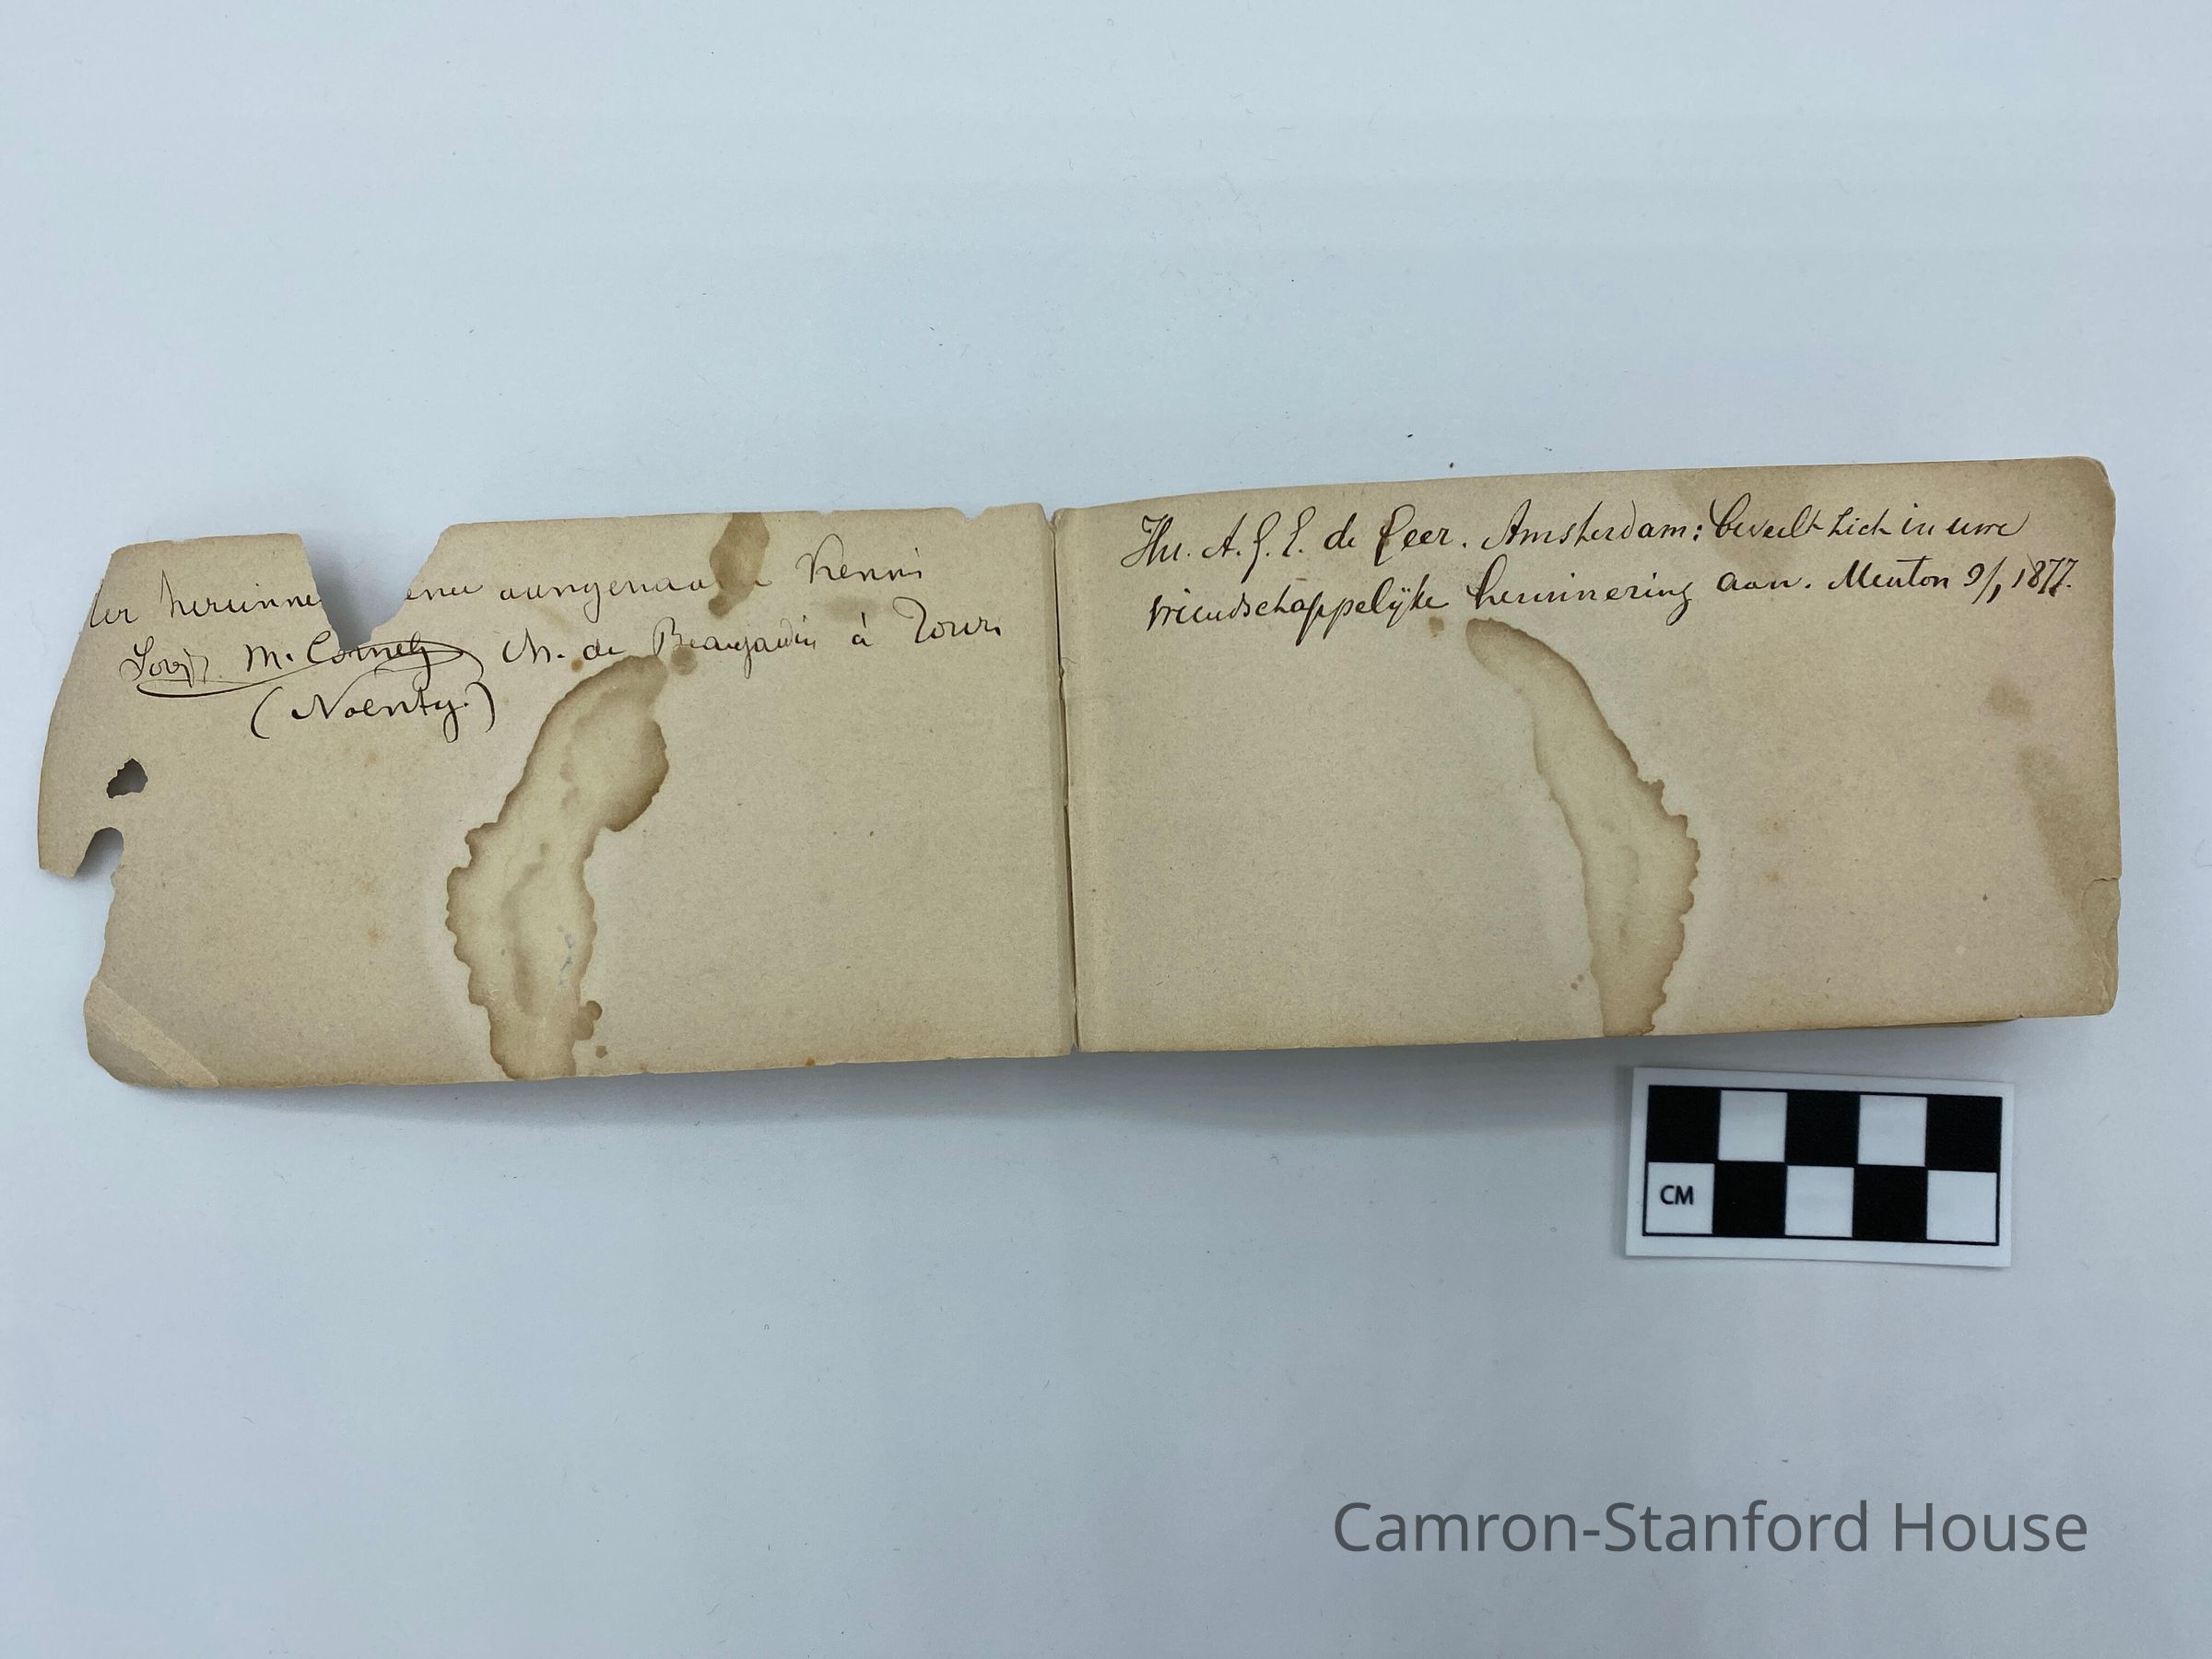 ter herinne enu aangenaa Kennis
M. Cornely Ch. de Beaujardin à Tours
(Noenty.)
A. J. E. de Leer. Amsterdam: beveelt zich in uwe
vriendschappelijke herinnering aan. Menton 9/1 1877.
CM
Camron-Stanford House